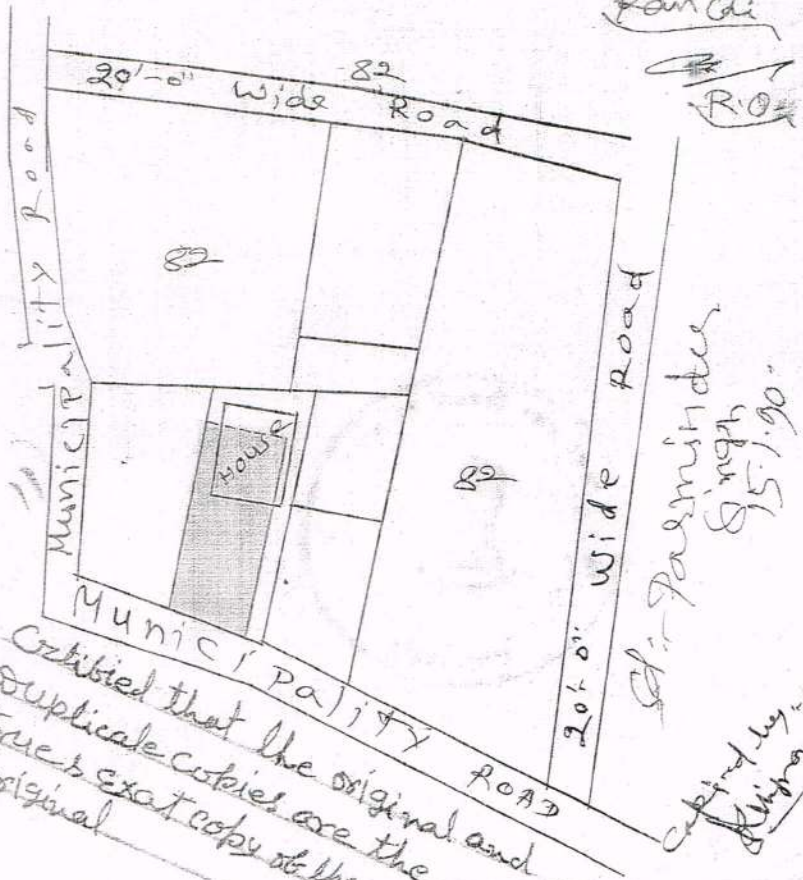 Ranchi
R.O.
20'-0" Wide Road
82
Municipality Road
82
HOUSE
82
20'-0" Wide Road
Municipality ROAD
Sd/- Parminder
Singh
15.1.90.
Certified that the original and
Duplicate copies are the
exat copy of the
original
by